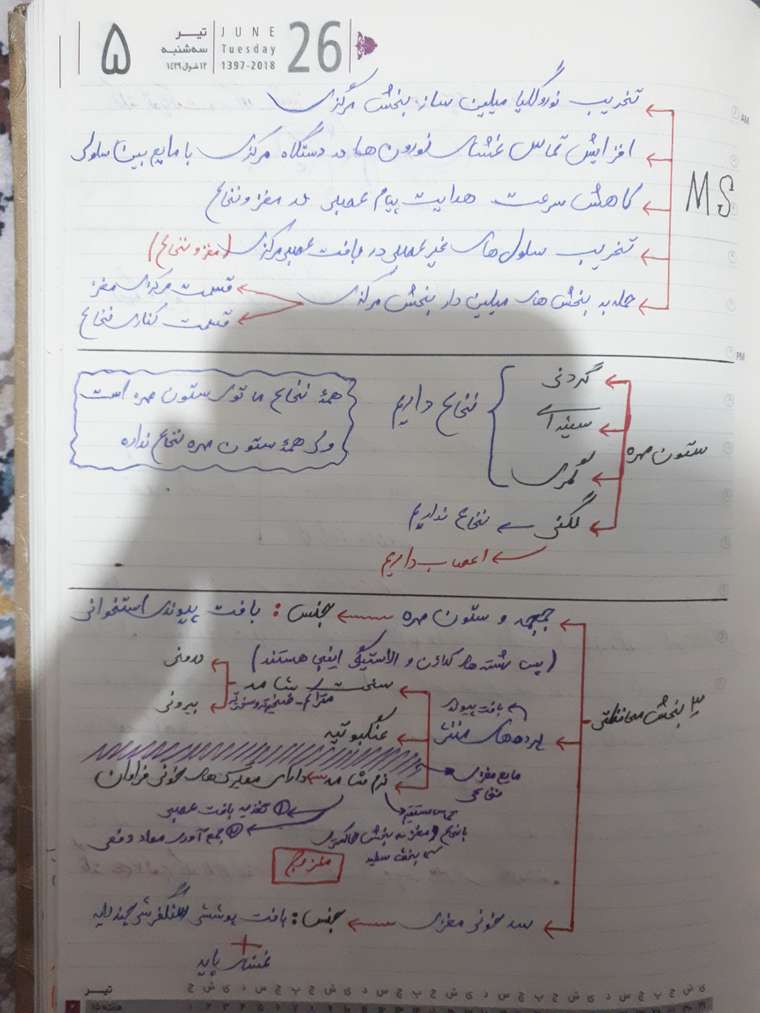 ۵
تیر
سه‌شنبه
۱۲ شوال ۱۴۳۹
JUNE
Tuesday
1397-2018
26
MS
تخریب نوروگلیا میلین ساز بخش مرکزی
افزایش تماس غشای نورون ها در دستگاه مرکزی با مایع بین سلولی
کاهش سرعت هدایت پیام عصبی در مغز و نخاع
تخریب سلول های غیر عصبی در بافت عصبی مرکزی (مغز و نخاع)
حمله به بخش های میلین دار بخش مرکزی
قسمت مرکزی مغز
قسمت کناری نخاع
ستون مهره
گردنی
سینه ای
کمری
نخاع داریم
لگنی ← نخاع نداریم
← اعصاب داریم
همهٔ نخاع ما توی ستون مهره است
ولی همهٔ ستون مهره نخاع نداره
۳ بخش محافظتی
جمجمه و ستون مهره ← جنس : بافت پیوندی استخوانی
(پس رشته های کلاژن و الاستیک اینجا هستند)
پرده های مننژ
بافت پیوند
سخت شامه
درونی
بیرونی
عنکبوتیه
مایع مغزی
نخاعی
نرم شامه ← دارای مویرگ های خونی فراوان
① تغذیه بافت عصبی
② جمع آوری مواد دفعی
تماس مستقیم
با نخاع و مغز نه بخش خاکستری
بخش سفید
سد خونی مغزی ← جنس : بافت پوششی سنگفرشی چند لایه
+
غشای پایه
تیر